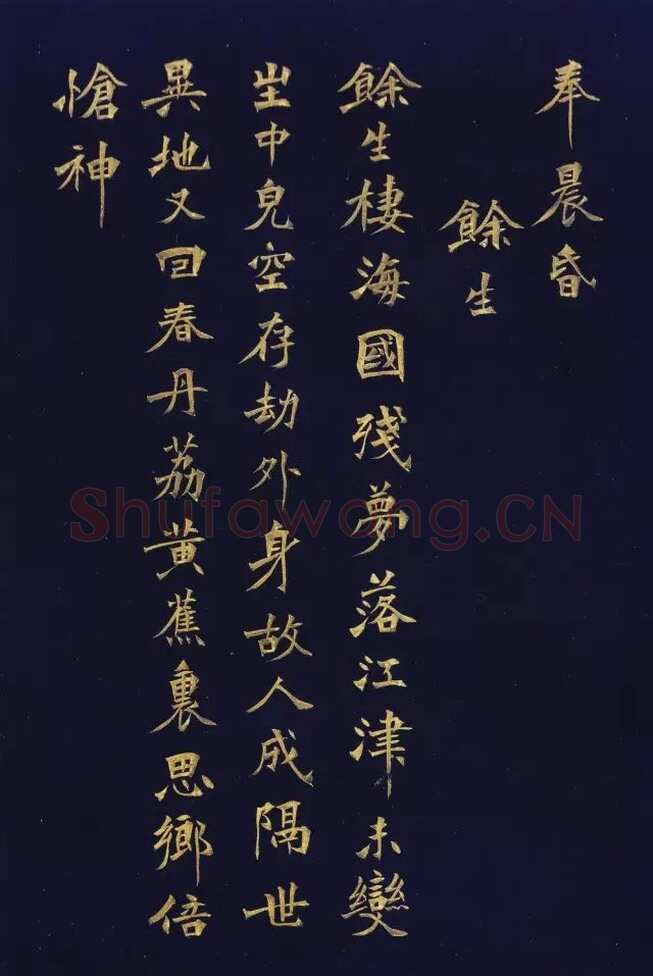 奉晨昏
餘生
餘生棲海國殘夢落江津未變
生中皃空存劫外身故人成隔世
異地又回春丹荔黃蕉裏思鄉倍
愴神
Shufawang.CN